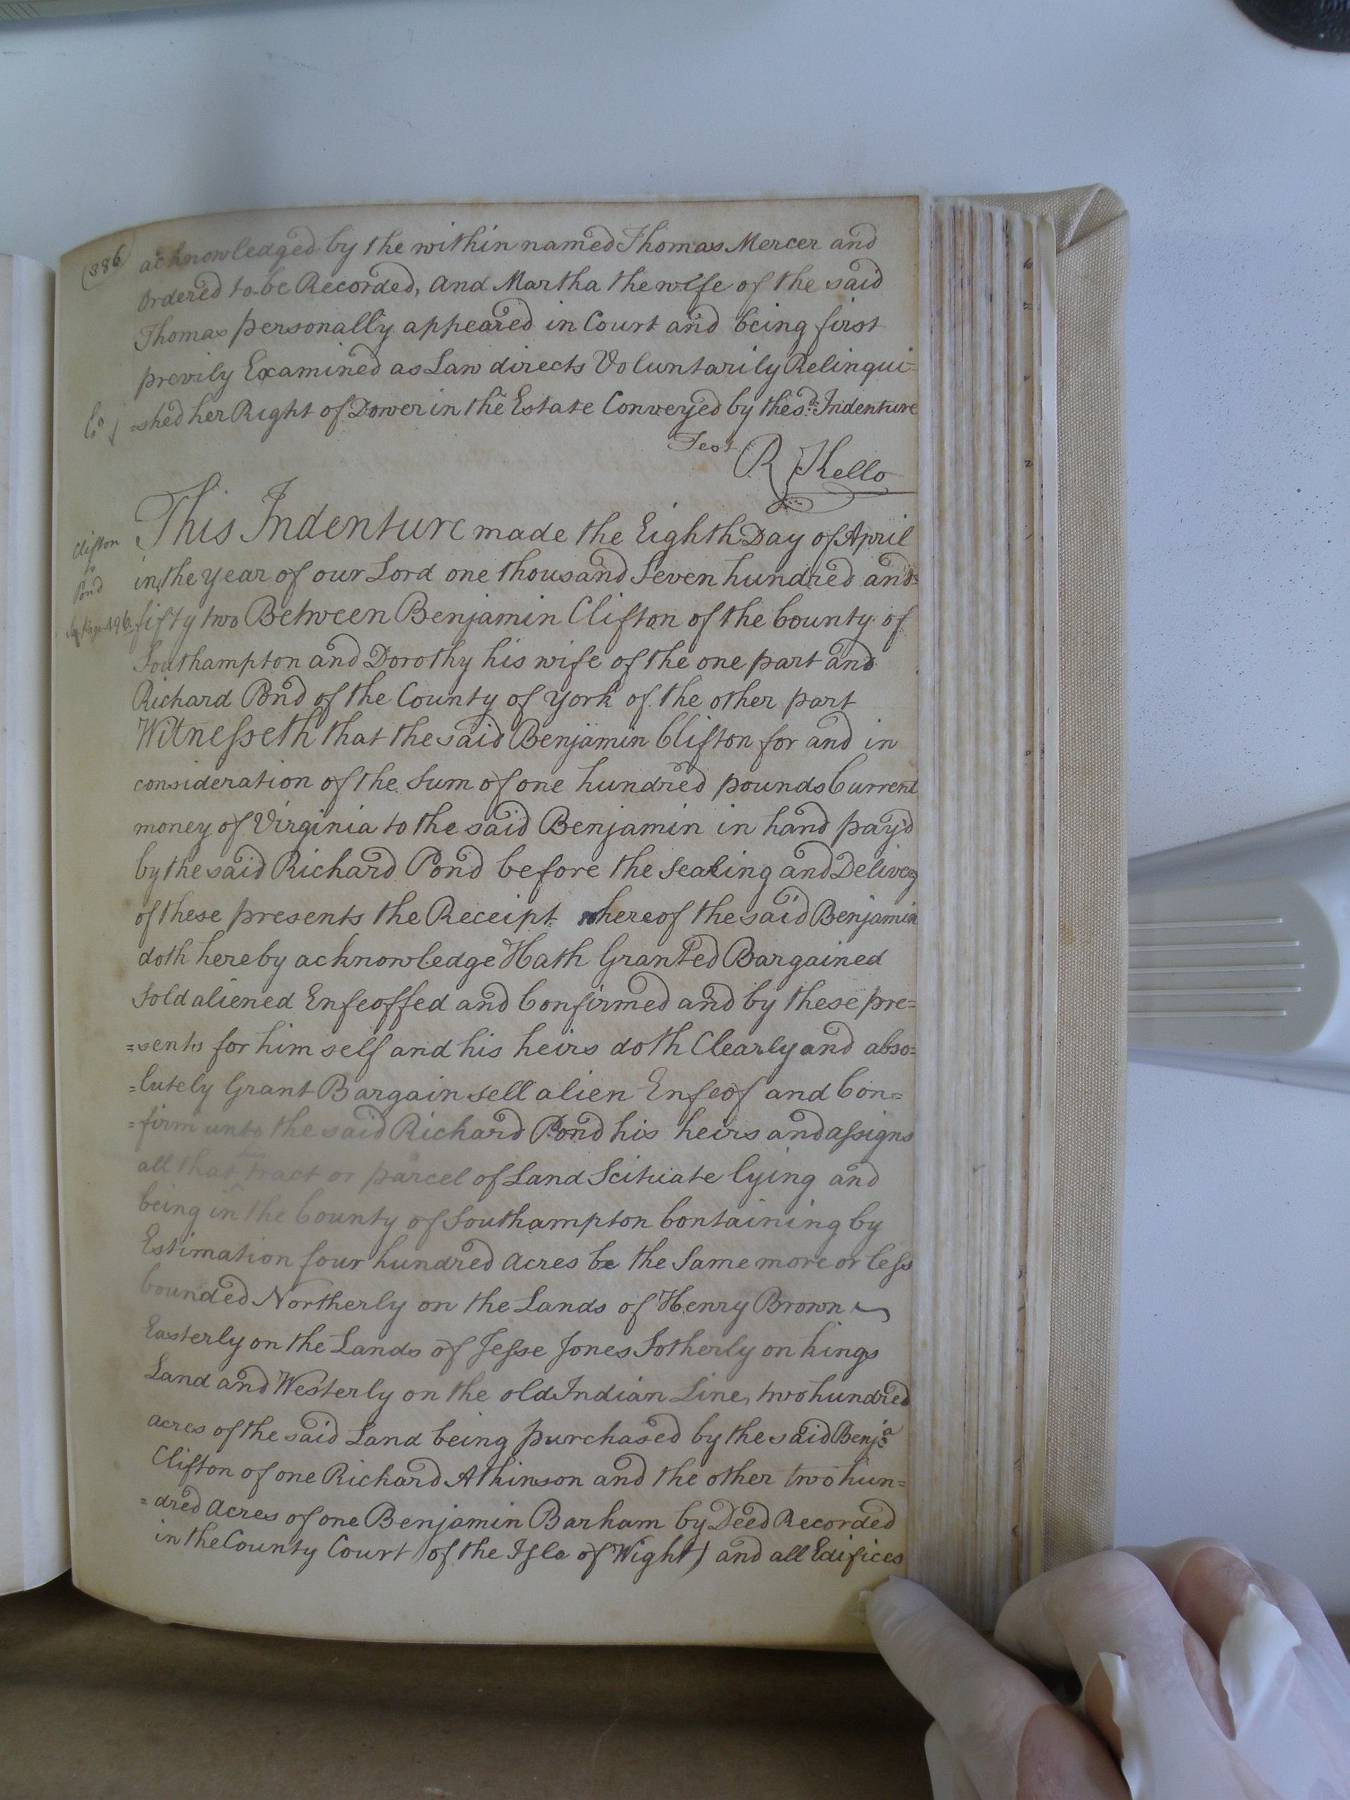 (386)
acknowledged by the within named Thomas Mercer and
Ordered to be Recorded, And Martha the wife of the said
Thomas personally appeared in Court and being first
previly Examined as Law directs Voluntarily Relinqui=
=shed her Right of Dower in the Estate Conveyed by the sd. Indenture
Test
R Kello
Clifton
to
Pond
This Indenture made the Eighth Day of April
in the year of our Lord one thousand Seven hundred and
fifty two Between Benjamin Clifton of the County of
Southampton and Dorothy his wife of the one part and
Richard Pond of the County of York of the other part
Witnesseth that the said Benjamin Clifton for and in
consideration of the Sum of one hundred pounds Current
money of Virginia to the said Benjamin in hand pay'd
by the said Richard Pond before the Sealing and Delivery
of these presents the Receipt whereof the said Benjamin
doth hereby acknowledge Hath Granted Bargained
Sold aliened Enfeoffed and Confirmed and by these pre=
=sents for him self and his heirs doth Clearly and abso=
=lutely Grant Bargain sell alien Enfeof and Con=
=firm unto the said Richard Pond his heirs and assigns
all that Tract or parcel of Land Scituate lying and
being in the County of Southampton Containing by
Estimation four hundred Acres be the Same more or less
bounded Northerly on the Lands of Henry Brown
Easterly on the Lands of Jesse Jones Sotherly on kings
Land and Westerly on the old Indian Line, two hundred
acres of the said Land being purchased by the said Benja.
Clifton of one Richard Atkinson and the other two hun=
=dred Acres of one Benjamin Barham by Deed Recorded
in the County Court (of the Isle of Wight) and all Edifices